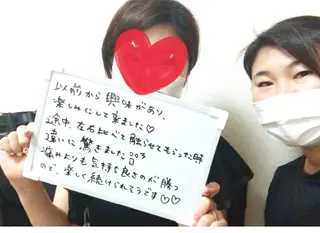 以前から興味があり、
楽しみにして来ました♡
途中、左右比べて触らせてもらった時
違いに驚きました!!!
痛みよりも気持ち良さのが勝つ
ので、楽しく続けられそうです♡♡